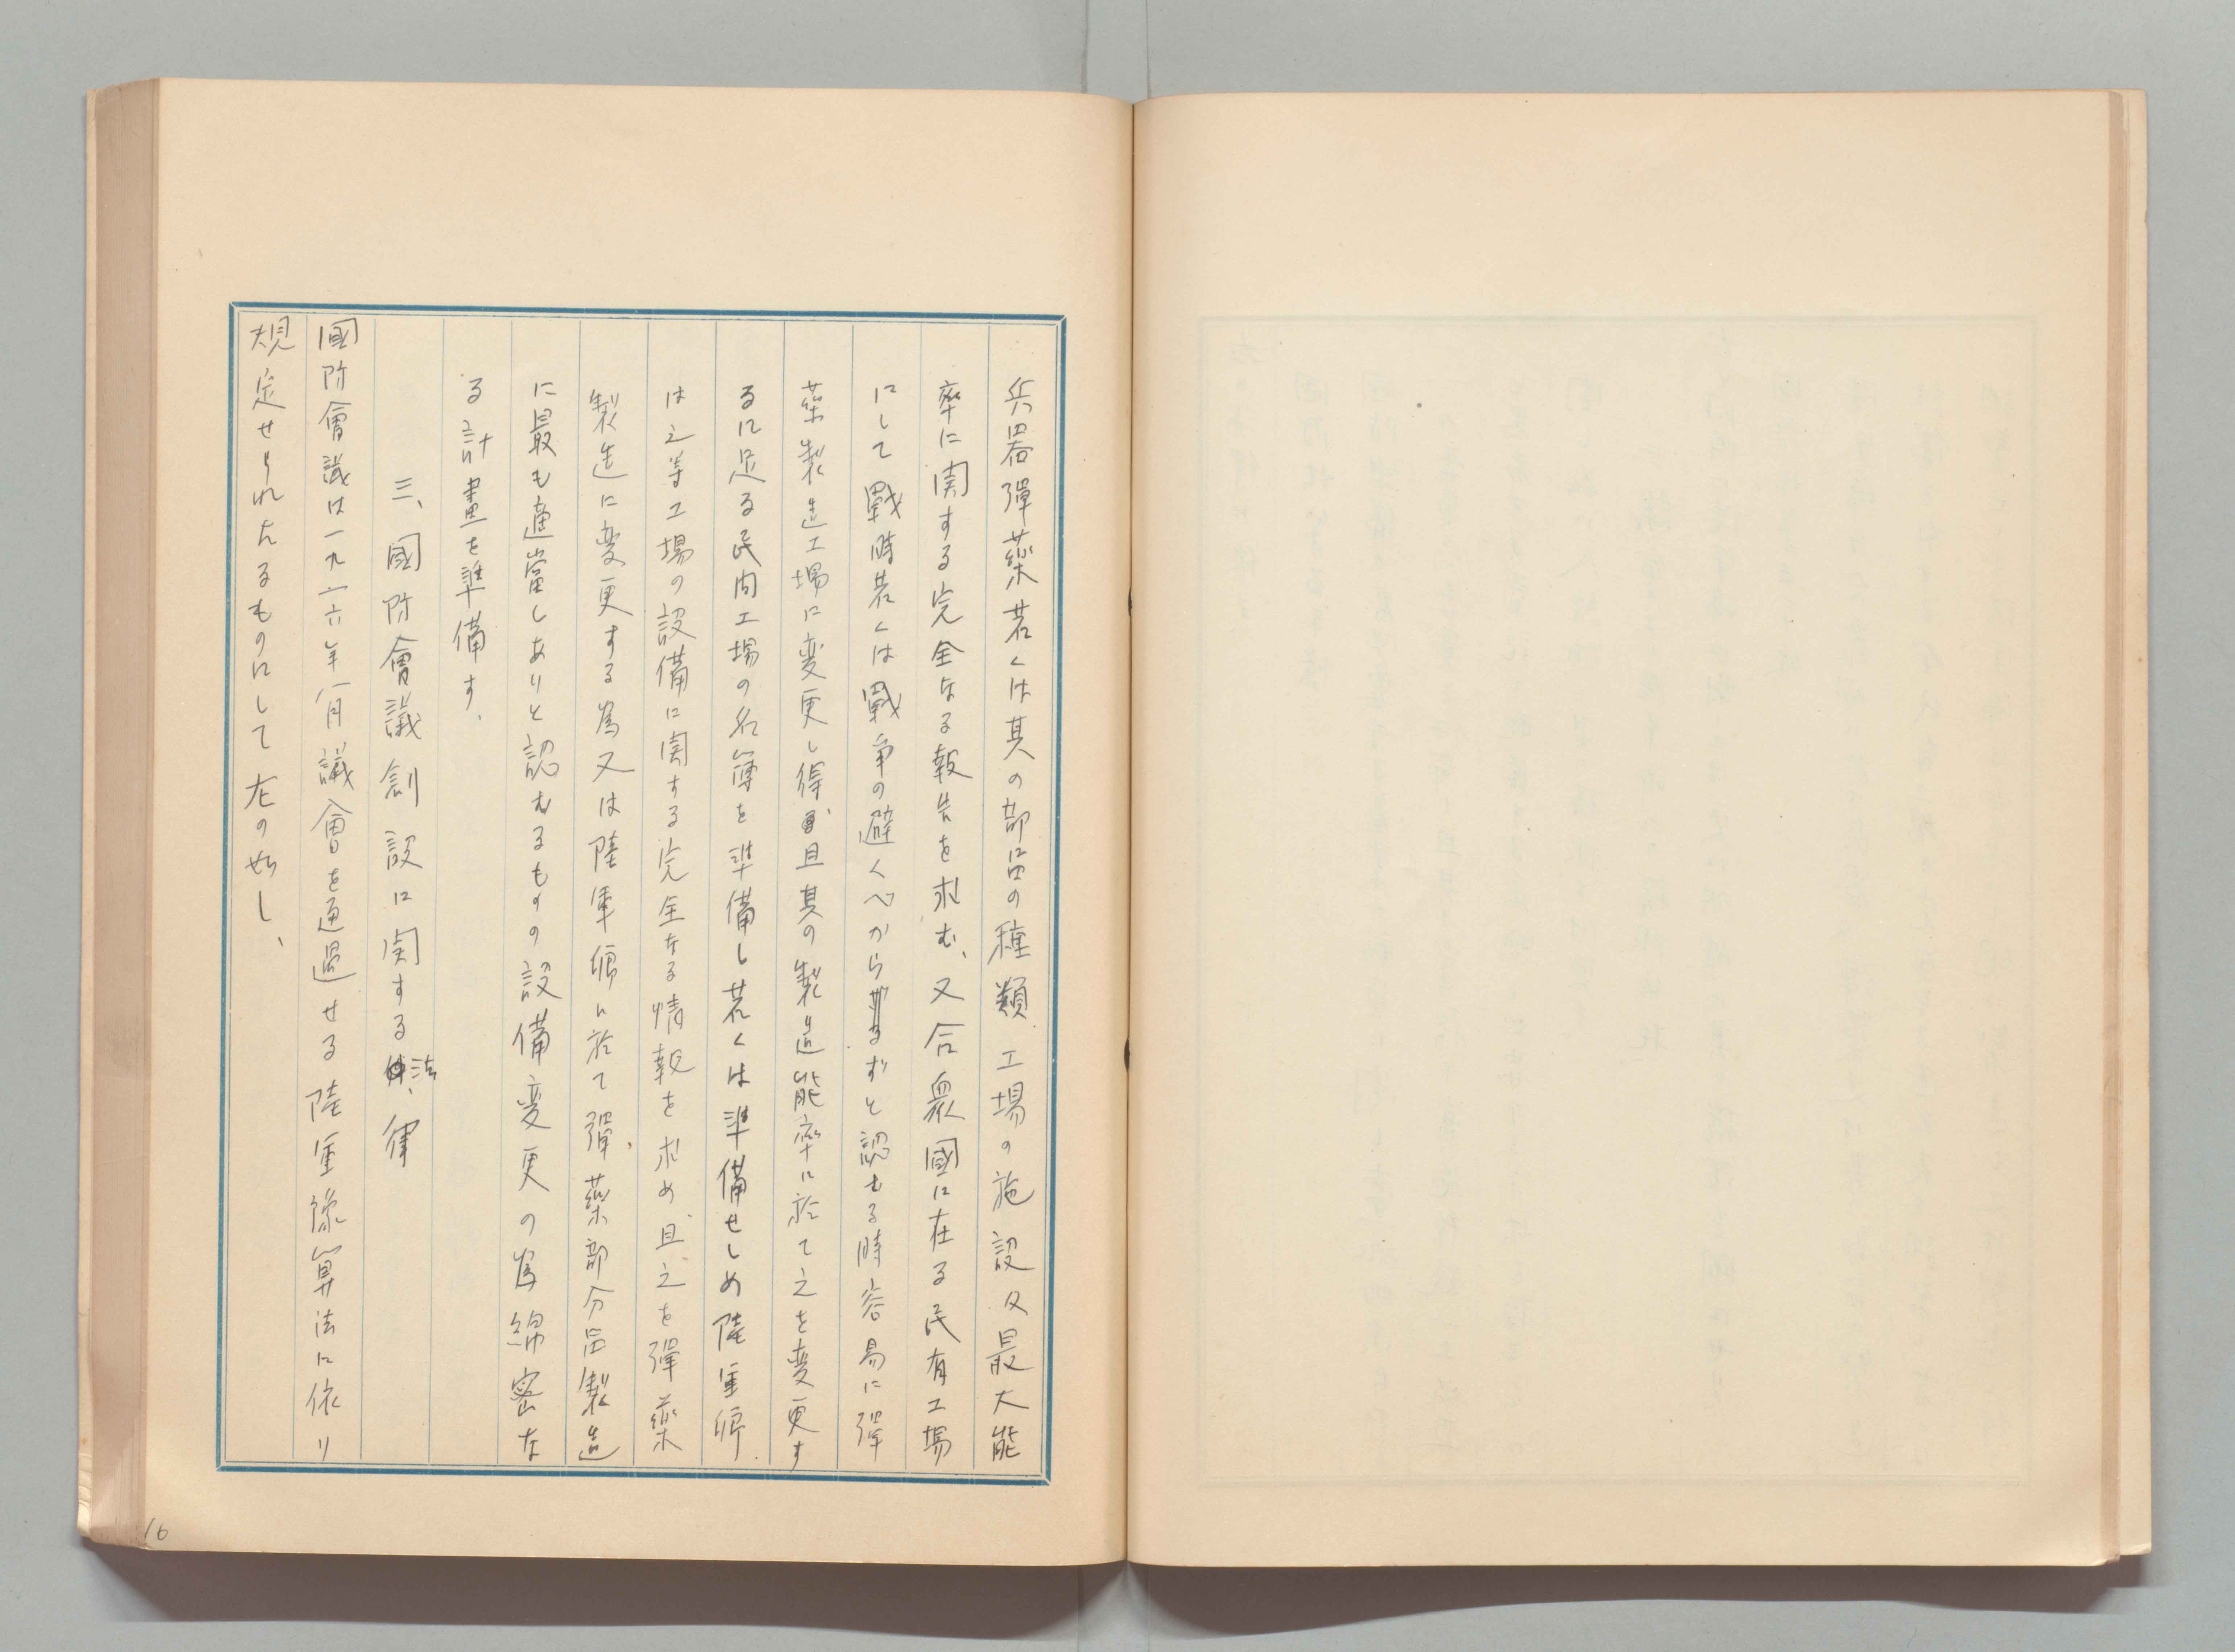 兵器彈藥若くは其の部品の種類工場の施設及最大能
率に関する完全なる報告を求む、又合衆國に在る民有工場
にして戰時若くは戰争の避くべからずと認むる時容易に彈
藥製造工場に変更し得且其の製造能率に於て之を変更す
るに足る民间工場の名簿を準備し若くは準備せしめ陸軍卿
は之等工場の設備に関する完全なる情報を求め且之を彈藥
製造に変更する為又は陸軍卿に於て彈藥部分品製造
に最も適當しありと認むるものの設備変更の為綿密な
る計畫を準備す、
三、國防會議創設に関する法律
國防會議は一九一六年八月議會を通過せる陸軍豫算法に依り
規定せられたるものにして左の如し、
16